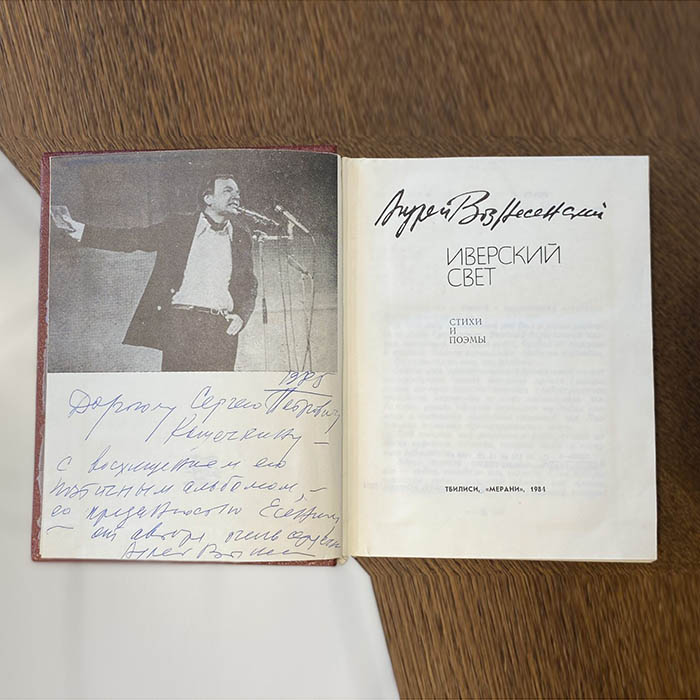 1985
Дорогому Сергею Петровичу
Кошечкину –
с восхищением его
поэтичным альбомом, –
его преданностью Есенину
– от автора очень сердечно
Андрей Возне
Андрей Вознесенский
ИВЕРСКИЙ
СВЕТ
СТИХИ
И
ПОЭМЫ
ТБИЛИСИ, «МЕРАНИ», 1984